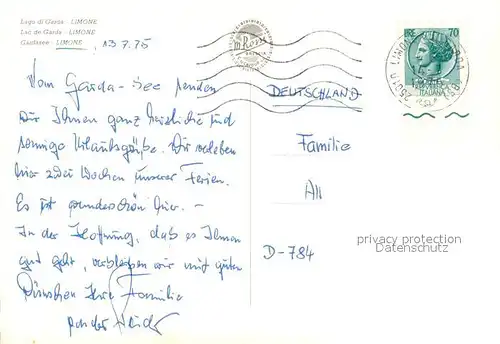 Lago di Garda - LIMONE
Lac de Garda - LIMONE
Gardasee - LIMONE
13.7.75
70
ITALIANA
DEUTSCHLAND
Vom Garda-See senden
wir Ihnen ganz herzliche und
sonnige Urlaubsgrüße. Wir verleben
hier zwei Wochen unserer Ferien.
Es ist wunderschön hier. -
In der Hoffnung, daß es Ihnen
gut geht, verbleiben wir mit guten
Wünschen Ihre Familie
Familie
All
D-784
privacy protection
Datenschutz